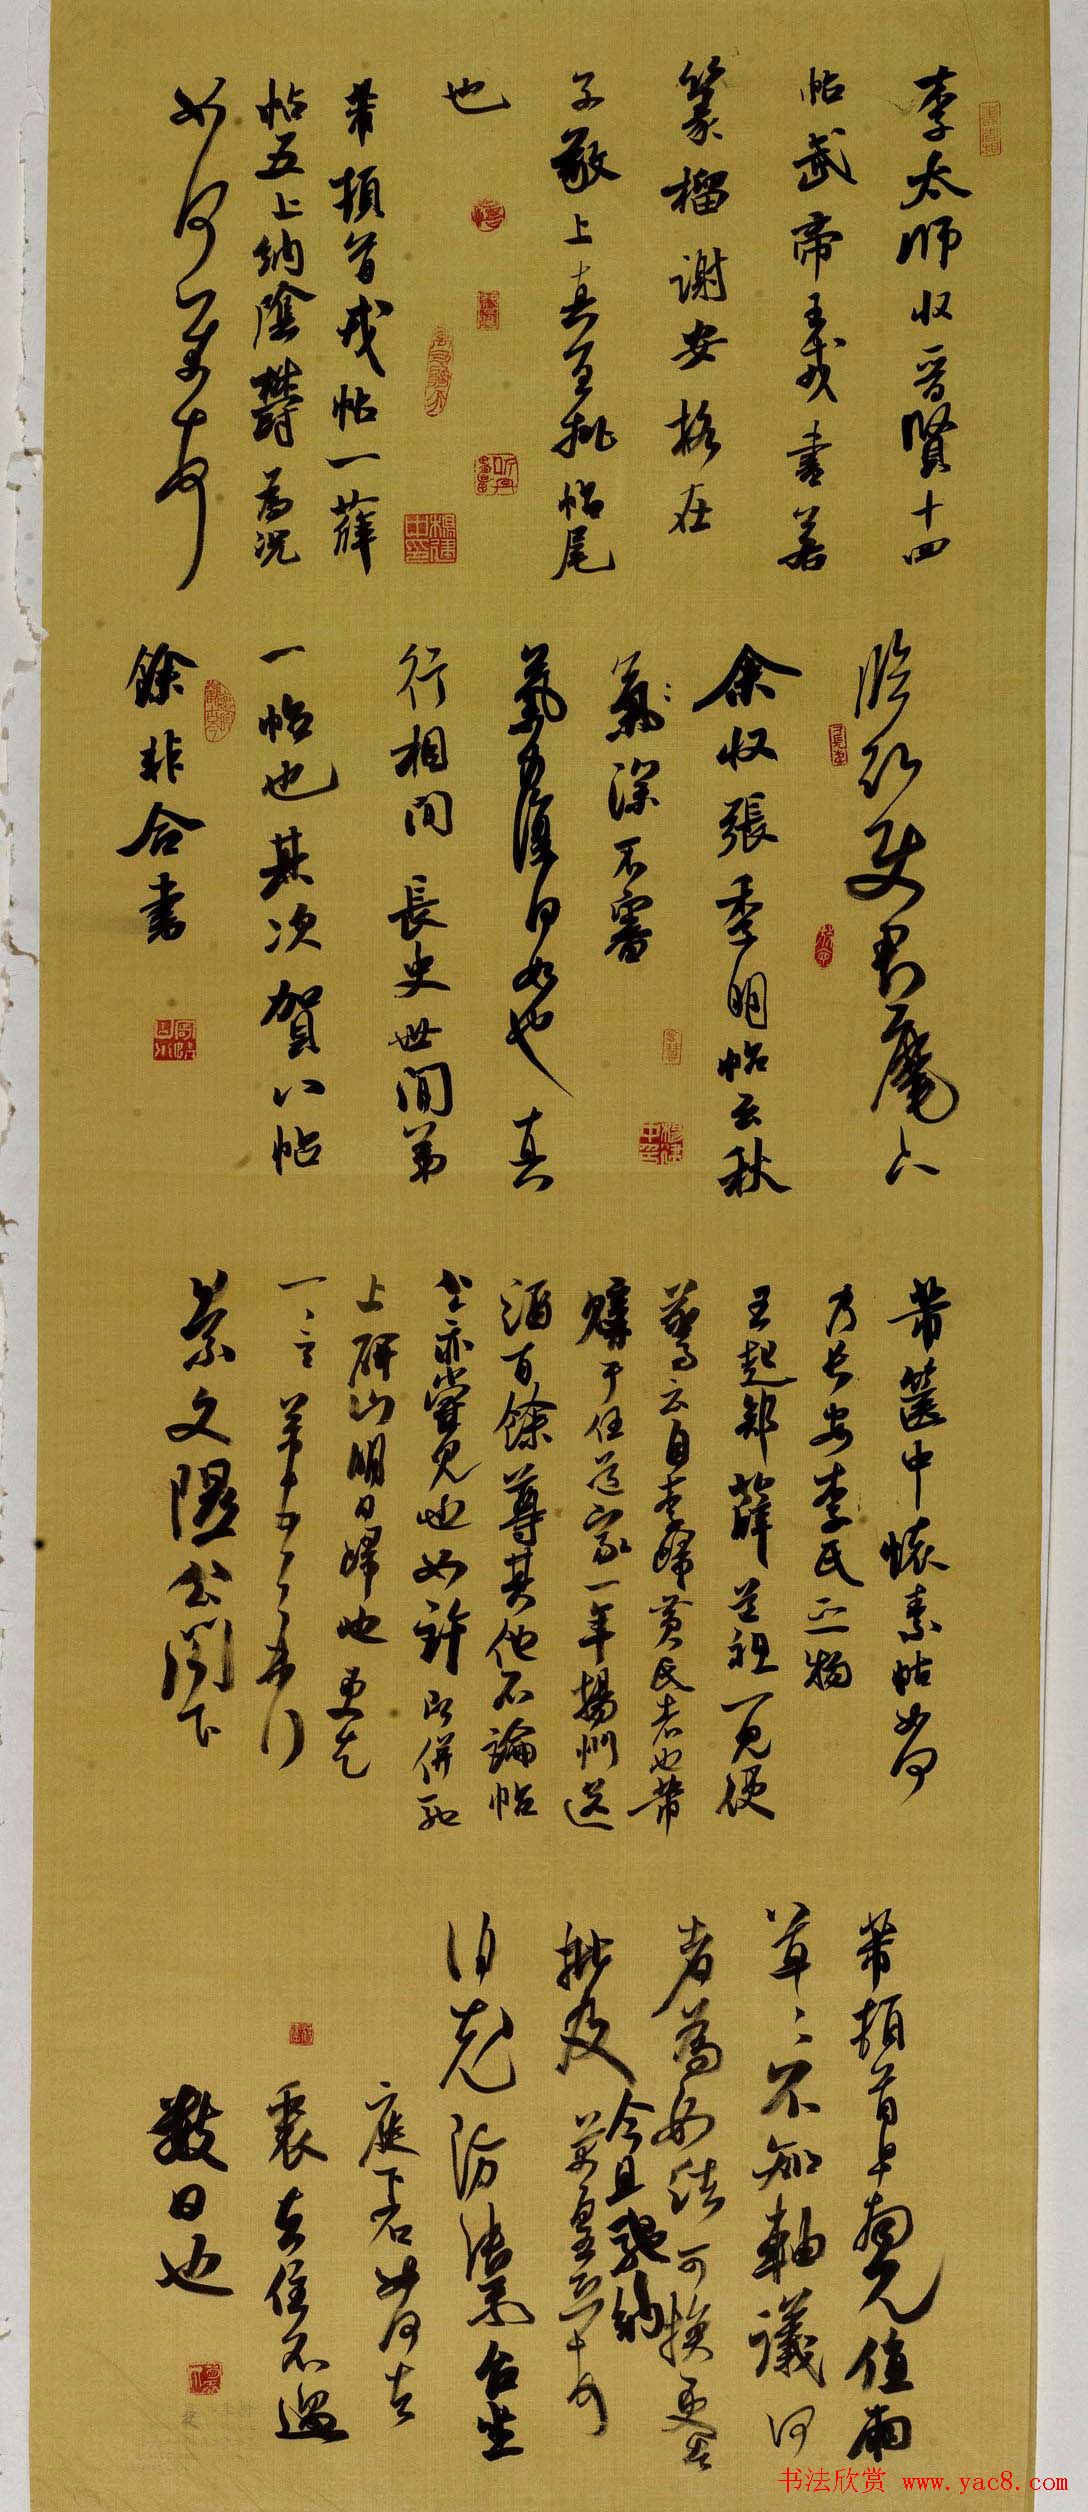 李太师收晋賢十四
帖武帝王戎書若
篆榴謝安格在
子敬上真至批帖尾
也
芾頓首戎帖一薛
帖五上納陰鬱為況
如何芾頓首
臨沂使君麾下
余收張季明帖云秋
氣深不審
氣力復何如也真
行相間長史世間第
一帖也其次賀八帖
餘非合書
芾篋中懷素帖如何
乃長安李氏之物
王起部薛道祖一見便
驚云自李歸黃氏者也芾
購于任道家一年揚州送
酒百餘尊其他不論帖
公亦嘗見也如許即併馳
上研山明日歸也更乞
一言芾頓首再拜
景文隰公閣下
芾頓首早拜見值雨
草草不知軸議何
者為如法可換更告
批及今且馳納芾皇恐頓首
伯充防禦台坐
庭下石如何去
裏去住不過
數日也
书法欣赏 www.yac8.com